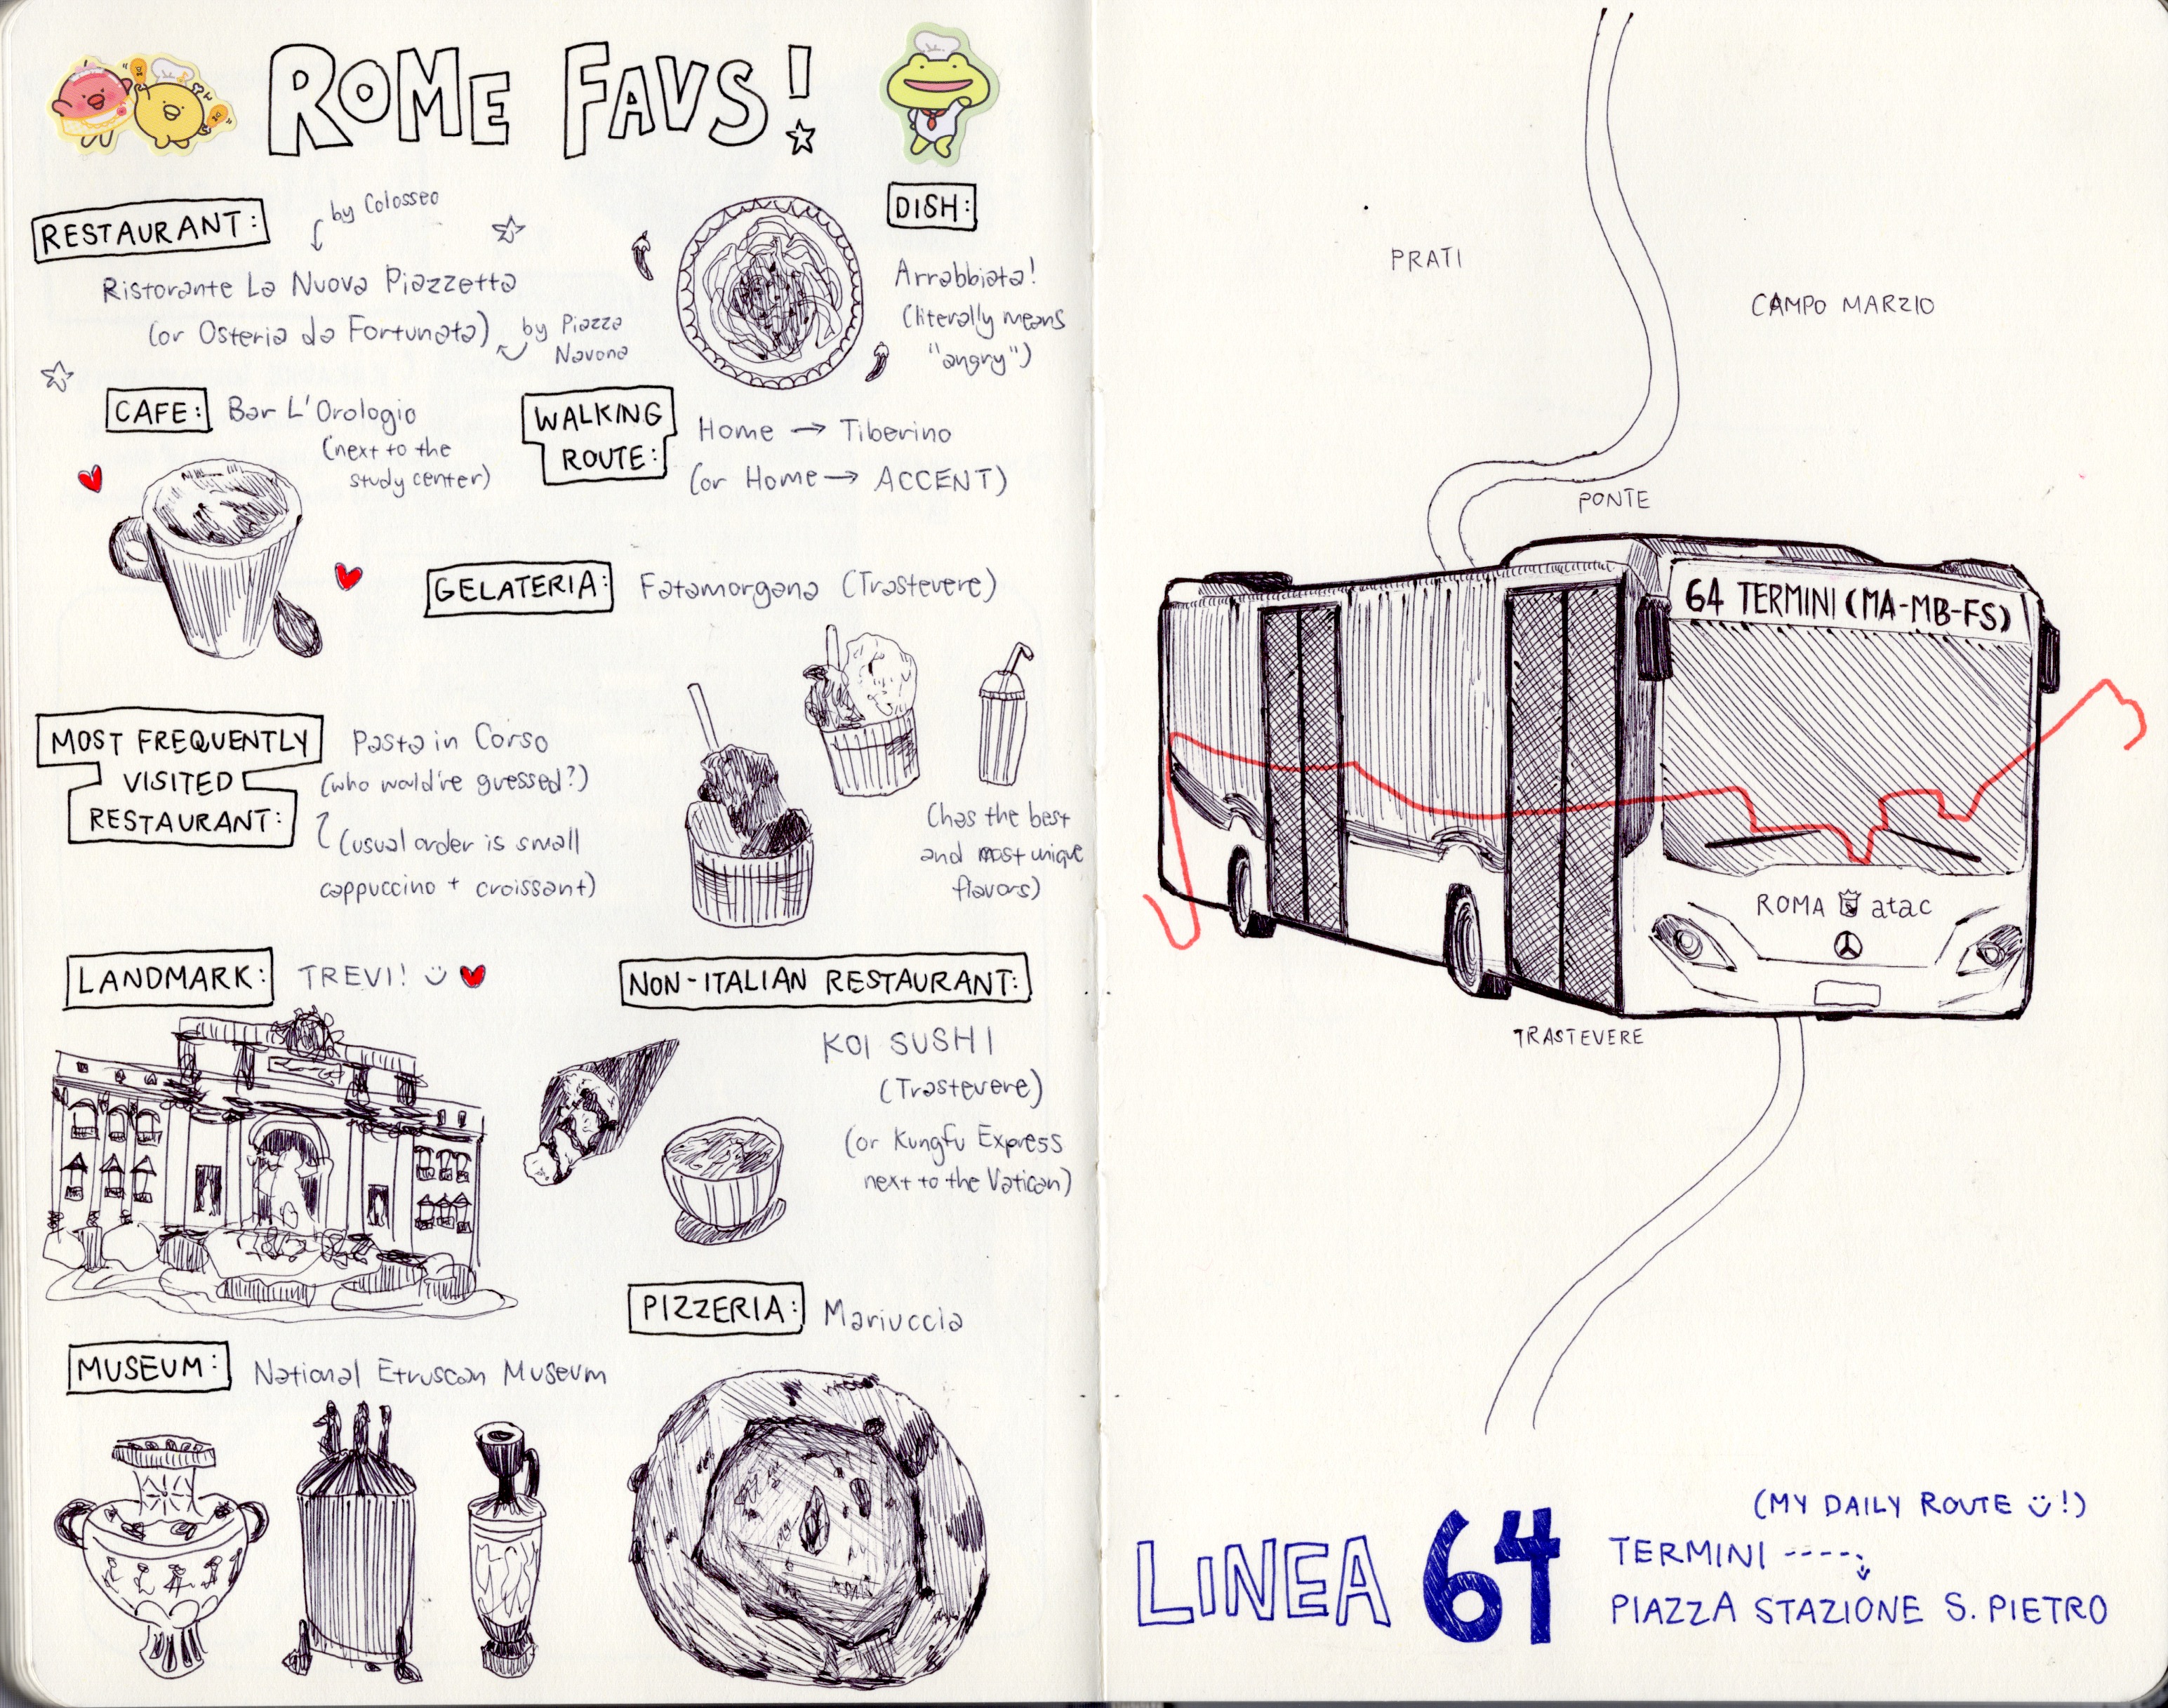 ROME FAVS!
RESTAURANT:
by Colosseo
Ristorante La Nuova Piazzetta
(or Osteria da Fortunata)
by Piazza
Navona
DISH:
Arrabbiata!
(literally means
"angry")
CAFE:
Bar L'Orologio
(next to the
study center)
WALKING
ROUTE:
Home → Tiberino
(or Home → ACCENT)
GELATERIA:
Fatamorgana (Trastevere)
(has the best
and most unique
flavors)
MOST FREQUENTLY
VISITED
RESTAURANT:
Pasta in Corso
(who would've guessed?)
(usual order is small
cappuccino + croissant)
LANDMARK:
TREVI!
NON-ITALIAN RESTAURANT:
KOI SUSHI
(Trastevere)
(or Kungfu Express
next to the Vatican)
PIZZERIA:
Mariuccia
MUSEUM:
National Etruscan Museum
PRATI
CAMPO MARZIO
PONTE
64 TERMINI (MA-MB-FS)
ROMA atac
TRASTEVERE
LINEA 64
(MY DAILY ROUTE !)
TERMINI ---->
PIAZZA STAZIONE S. PIETRO